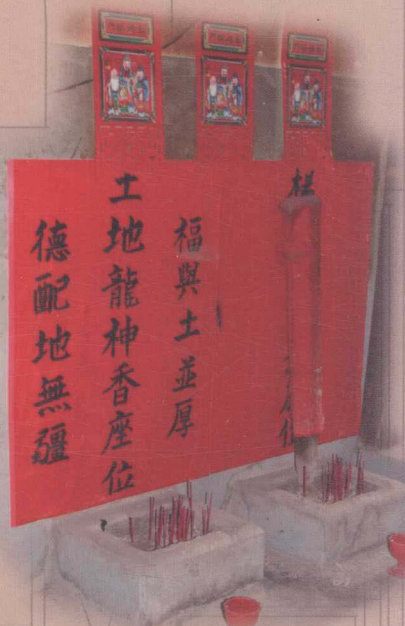 位
福與土並厚
土地龍神香座位
德配地無疆